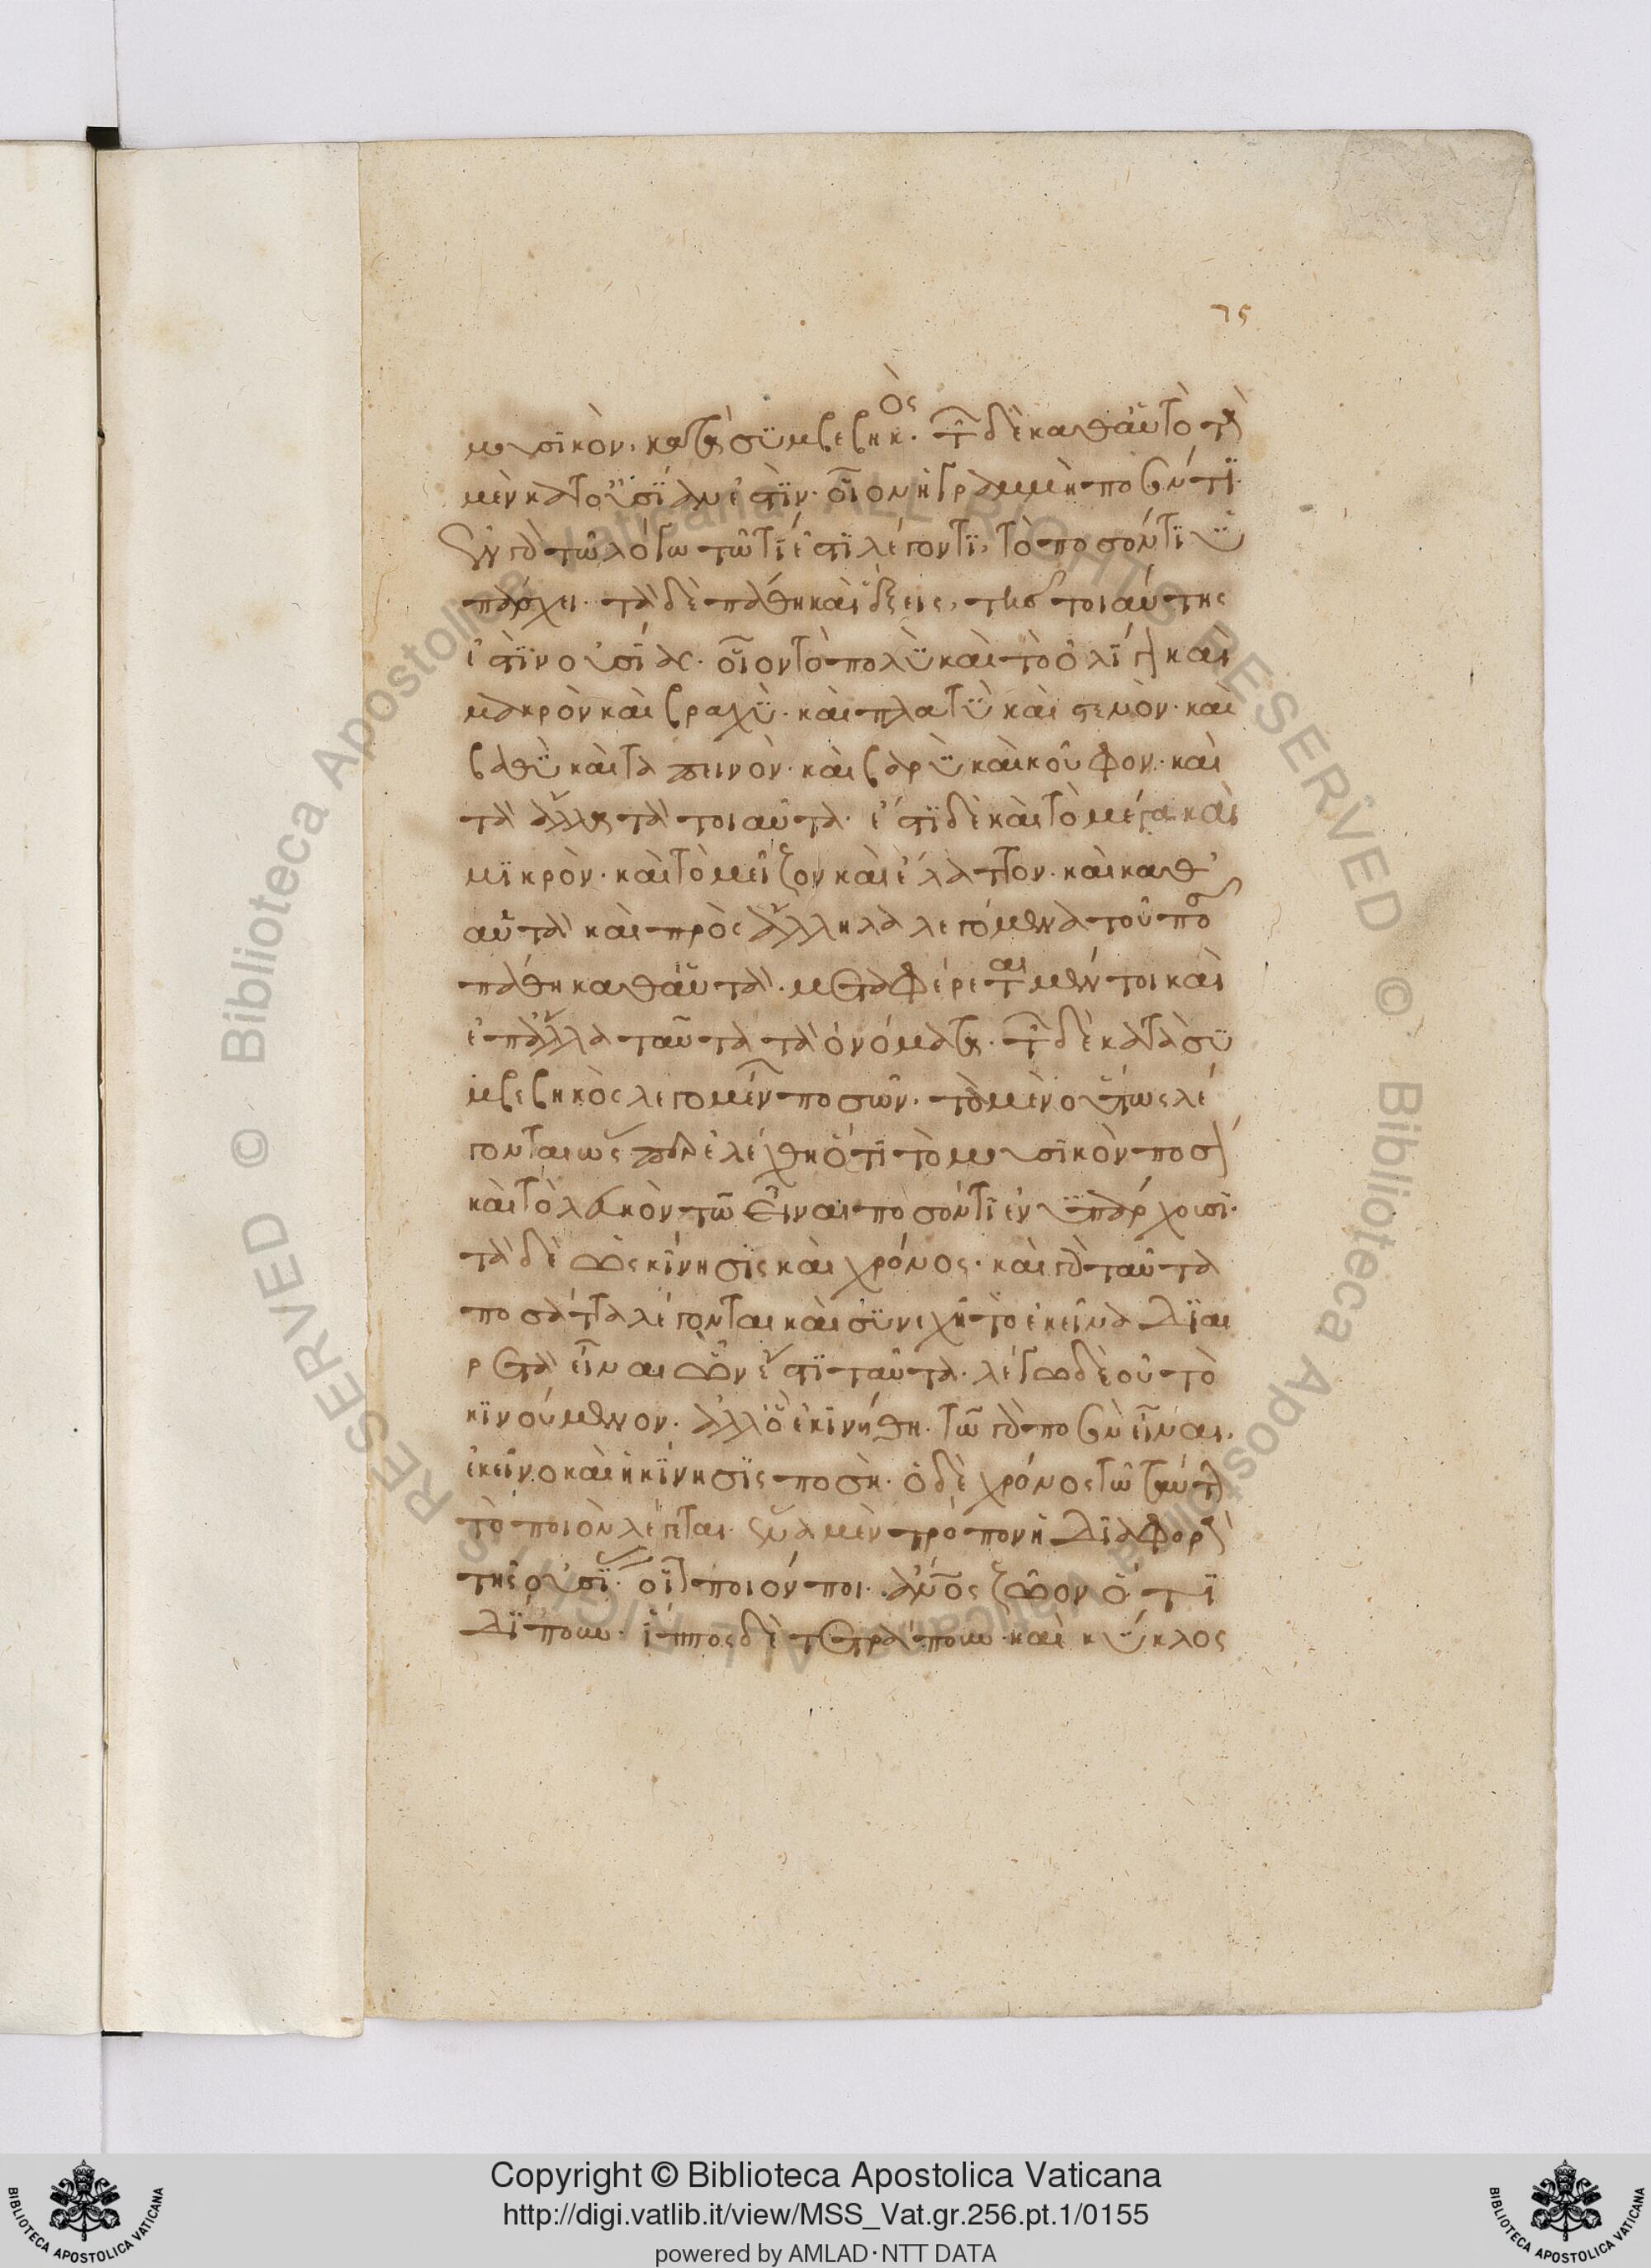 75
μουσικὸν, κατὰ συμβεβηκὸς. τῶν δὲ καθ' αὑτὸ τὰ
μὲν κατ' οὐσίαν ἐστὶν. οἷον ἡ γραμμὴ ποσόν τι.
ἐν γὰρ τῶ λόγω τῶ τί ἐστι λέγοντι, τὸ ποσόν τι ὑ
πάρχει. τὰ δὲ πάθη καὶ ἕξεις, τῆς τοιαύτης
ἐστὶν οὐσίας. οἷον τὸ πολὺ καὶ τὸ ὀλίγον καὶ
μακρὸν καὶ βραχὺ. καὶ πλατὺ καὶ στενὸν. καὶ
βαθὺ καὶ ταπεινὸν. καὶ βαρὺ καὶ κοῦφον. καὶ
τὰ ἄλλα τὰ τοιαῦτα. ἔστι δὲ καὶ τὸ μέγα καὶ
μικρὸν. καὶ τὸ μεῖζον καὶ ἔλαττον. καὶ καθ'
αὑτὰ καὶ πρὸς ἄλληλα λεγόμενα τοῦ ποσοῦ
πάθη καθ' αὑτὰ. μεταφέρεται μέντοι καὶ
ἐπ' ἄλλα ταῦτα τὰ ὀνόματα. τῶν δὲ κατὰ συ
μβεβηκὸς λεγομένων ποσῶν. τὸ μὲν οὕτως λέ
γονται ὥσπερ ἐλέχθη ὅτι τὸ μουσικὸν ποσὸν
καὶ τὸ λευκὸν τῶ εἶναι ποσόν τι ἐν ὑπάρχουσι.
τὰ δὲ ὡς κίνησις καὶ χρόνος. καὶ γὰρ ταῦτα
πόσ' ἄττα λέγονται καὶ συνεχῆ τὸ ἐκεῖνα διαι
ρετὰ εἶναι ὧν ἐστὶ ταῦτα. λέγω δὲ οὐ τὸ
κινούμενον. ἀλλ' ὃ ἐκινήθη. τῶ γὰρ ποσὸν εἶναι
ἐκεῖνο καὶ ἡ κίνησις ποσὴ. ὁ δὲ χρόνος τῶ ταύτην
τὸ ποιὸν λέγεται. ἕνα μὲν τρόπον ἡ διαφορὰ
τῆς οὐσίας. οἷον ποιόν τι ἄνθρωπος ζῶον ὅτι
δίπουν. ἵππος δὲ τετράπουν. καὶ κύκλος
Copyright © Biblioteca Apostolica Vaticana
http://digi.vatlib.it/view/MSS_Vat.gr.256.pt.1/0155
powered by AMLAD·NTT DATA